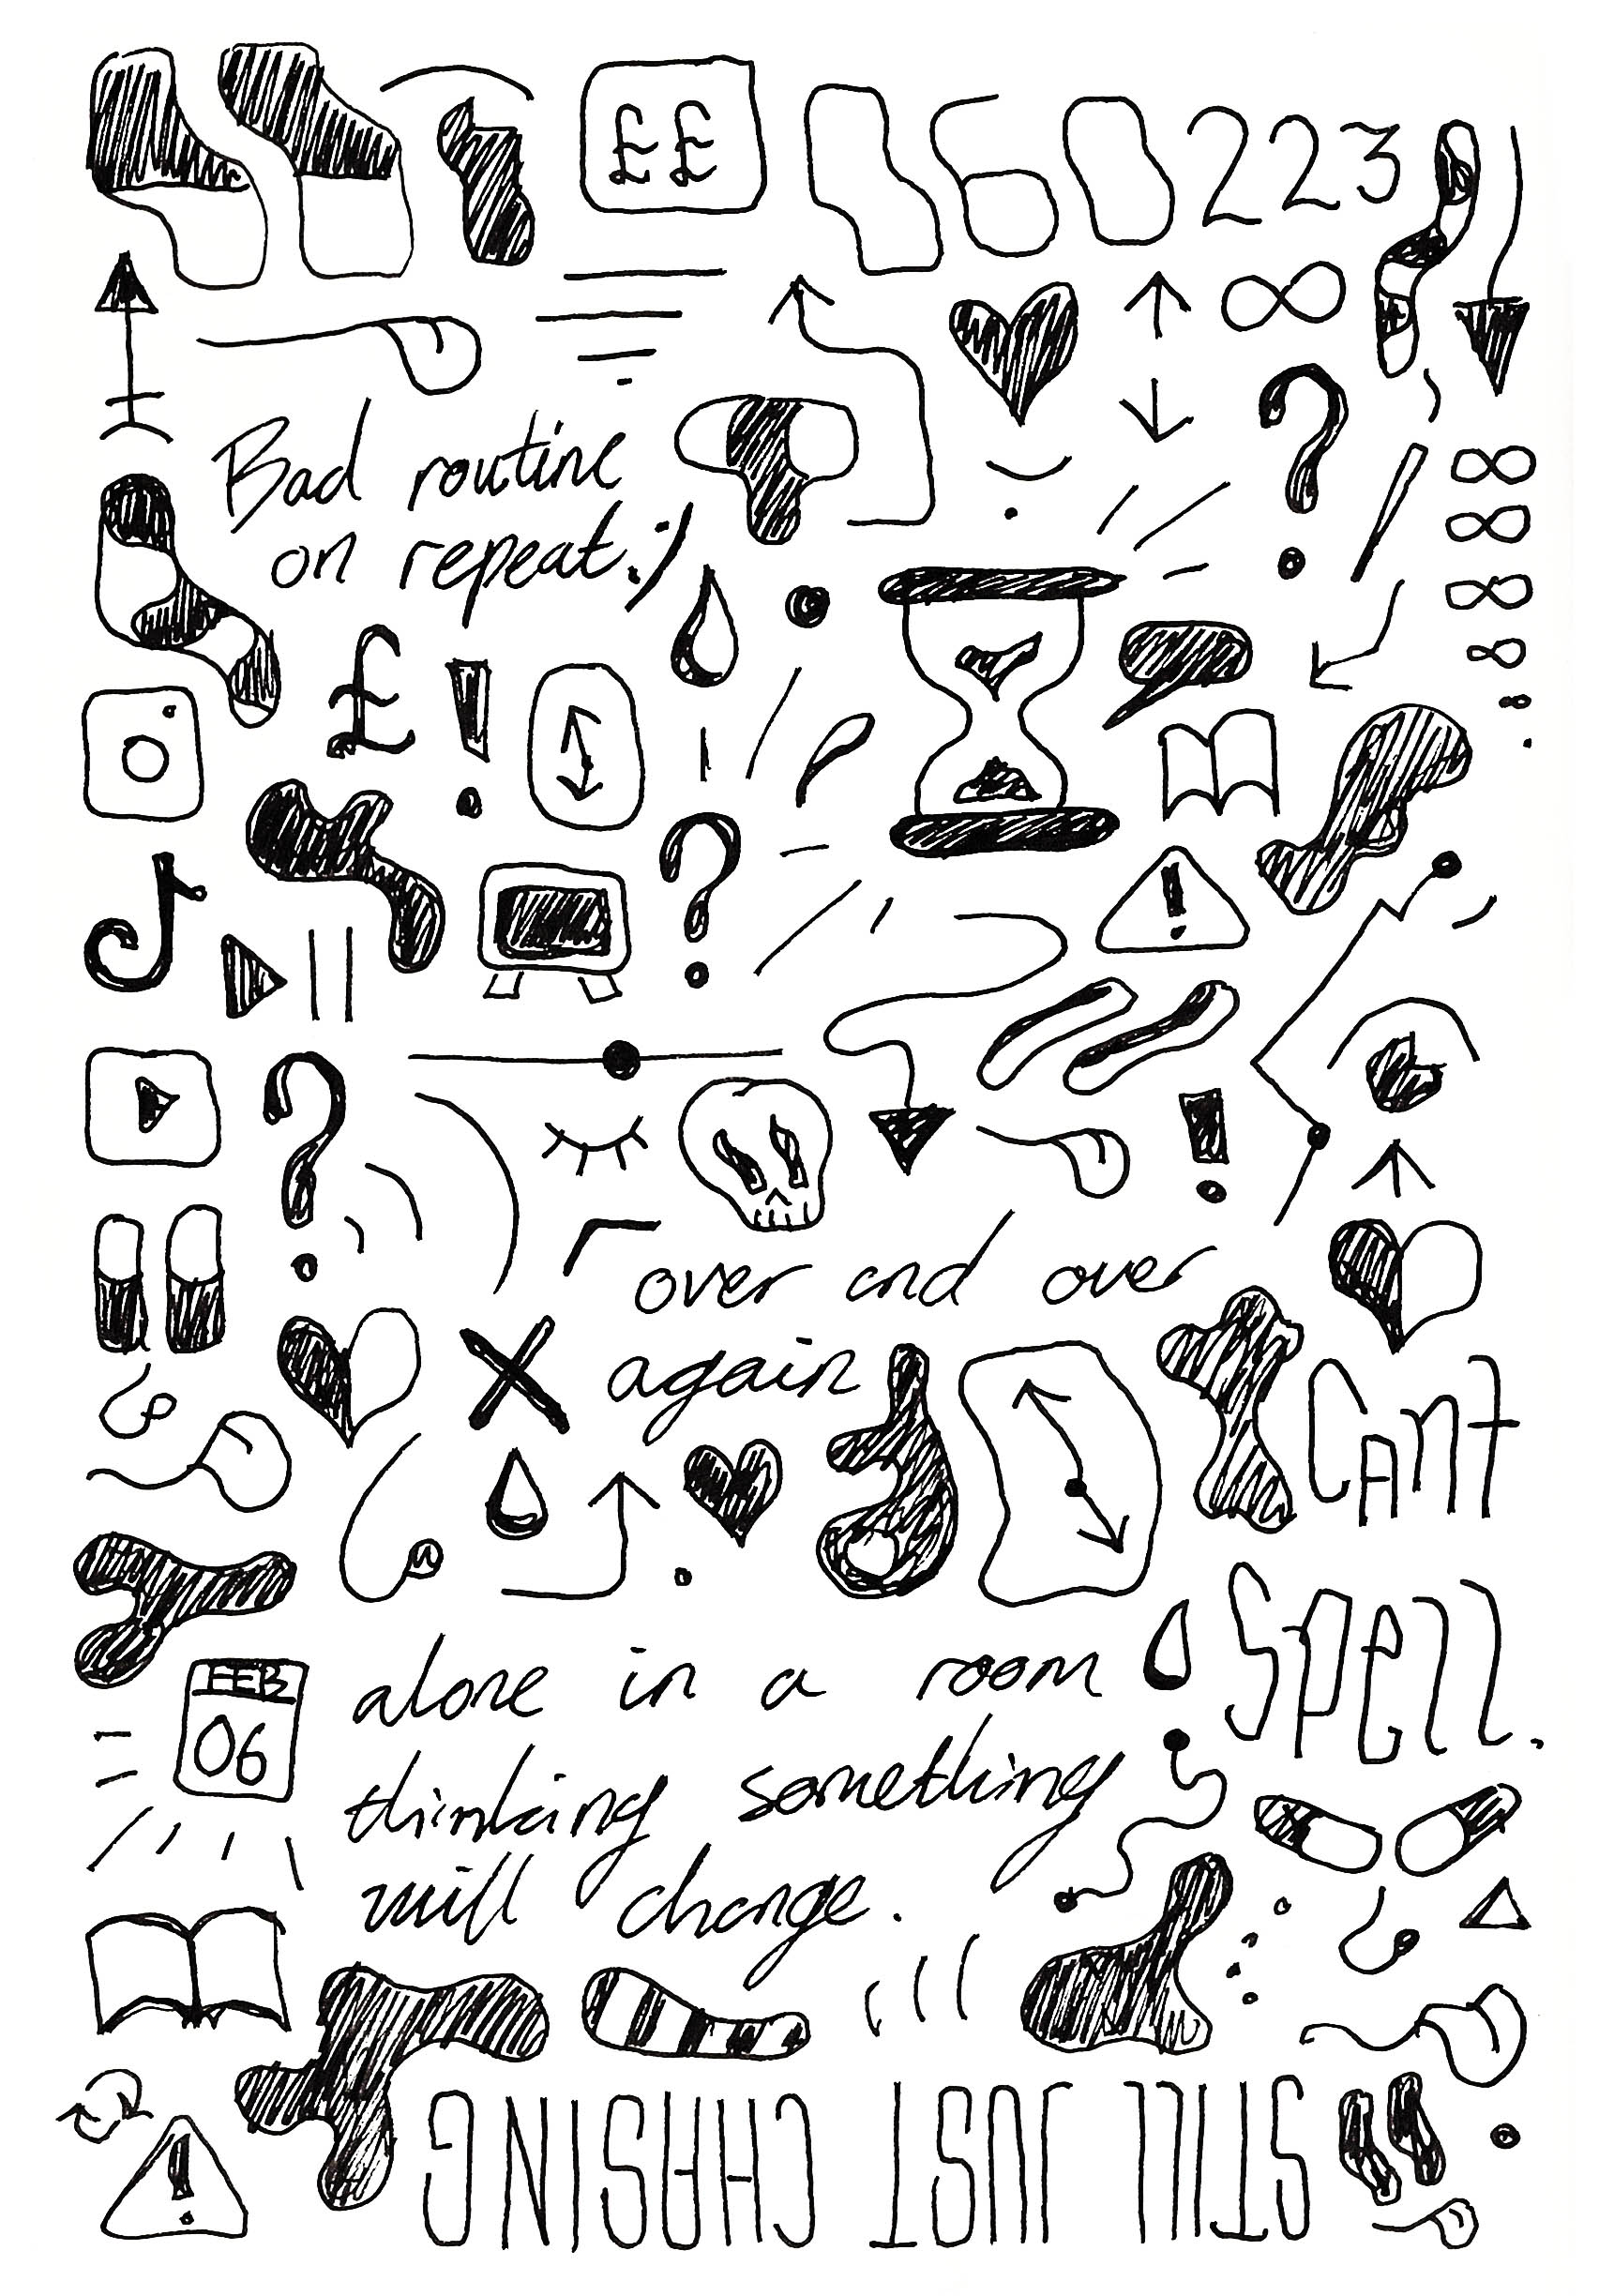 ££
060223
Bad routine
on repeat :/
£
over and over
again
CAnt
Spell.
FEB
06
alone in a room
thinking something
will change.
STILL JUST CHASING